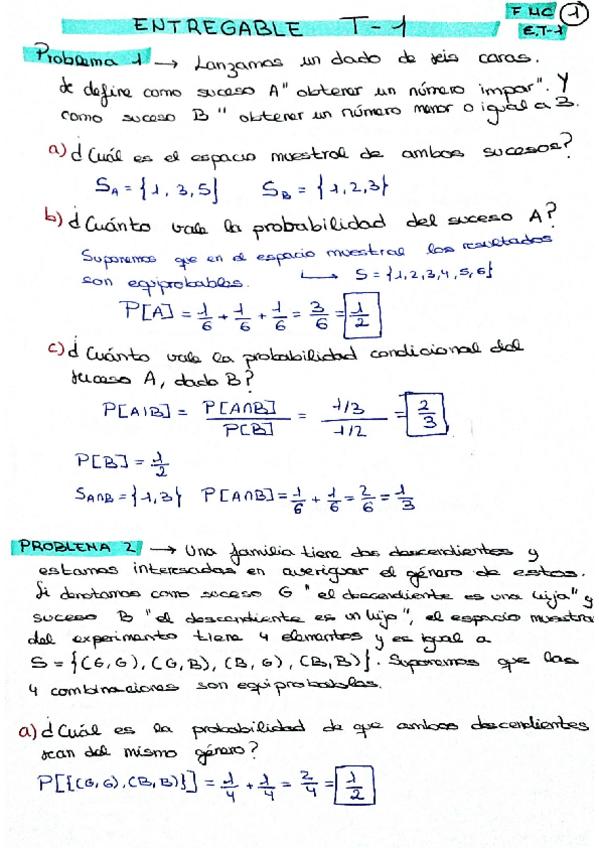 ENTREGABLE T-1
FMC
E.T-1
1
Problema 1 → Lanzamos un dado de seis caras.
Se define como suceso A" obtener un número impar". Y
como suceso B " obtener un número menor o igual a 3.
a) ¿Cuál es el espacio muestral de ambos sucesos?
S_A = {1, 3, 5} S_B = {1, 2, 3}
b) ¿Cuánto vale la probabilidad del suceso A?
Suponemos que en el espacio muestral los resultados
son equiprobables. → S = {1, 2, 3, 4, 5, 6}
P[A] = 1/6 + 1/6 + 1/6 = 3/6 = 1/2
c) ¿Cuánto vale la probabilidad condicional del
suceso A, dado B?
P[A|B] = P[A∩B]/P[B] = 1/3 / 1/2 = 2/3
P[B] = 1/2
S_A∩B = {1, 3} P[A∩B] = 1/6 + 1/6 = 2/6 = 1/3
PROBLEMA 2 → Una familia tiene dos descendientes y
estamos interesados en averiguar el género de estos.
Si denotamos como suceso G "el descendiente es una hija" y
suceso B "el descendiente es un hijo", el espacio muestra
del experimento tiene 4 elementos y es igual a
S = {(G, G), (G, B), (B, G), (B, B)}. Suponemos que las
4 combinaciones son equiprobables.
a) ¿Cuál es la probabilidad de que ambos descendientes
sean del mismo género?
P[{(G, G), (B, B)}] = 1/4 + 1/4 = 2/4 = 1/2